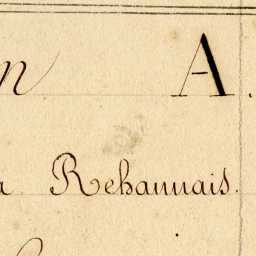 n A.
a Rehaunais.